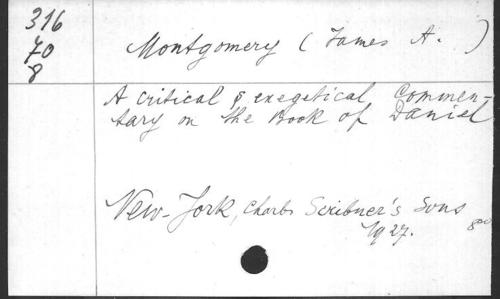 316
70
8
Montgomery (James A. )
A critical & exegetical Commen-
tary on the Book of Daniel
New-York, Charles Scribner's Sons
1927. 8vo